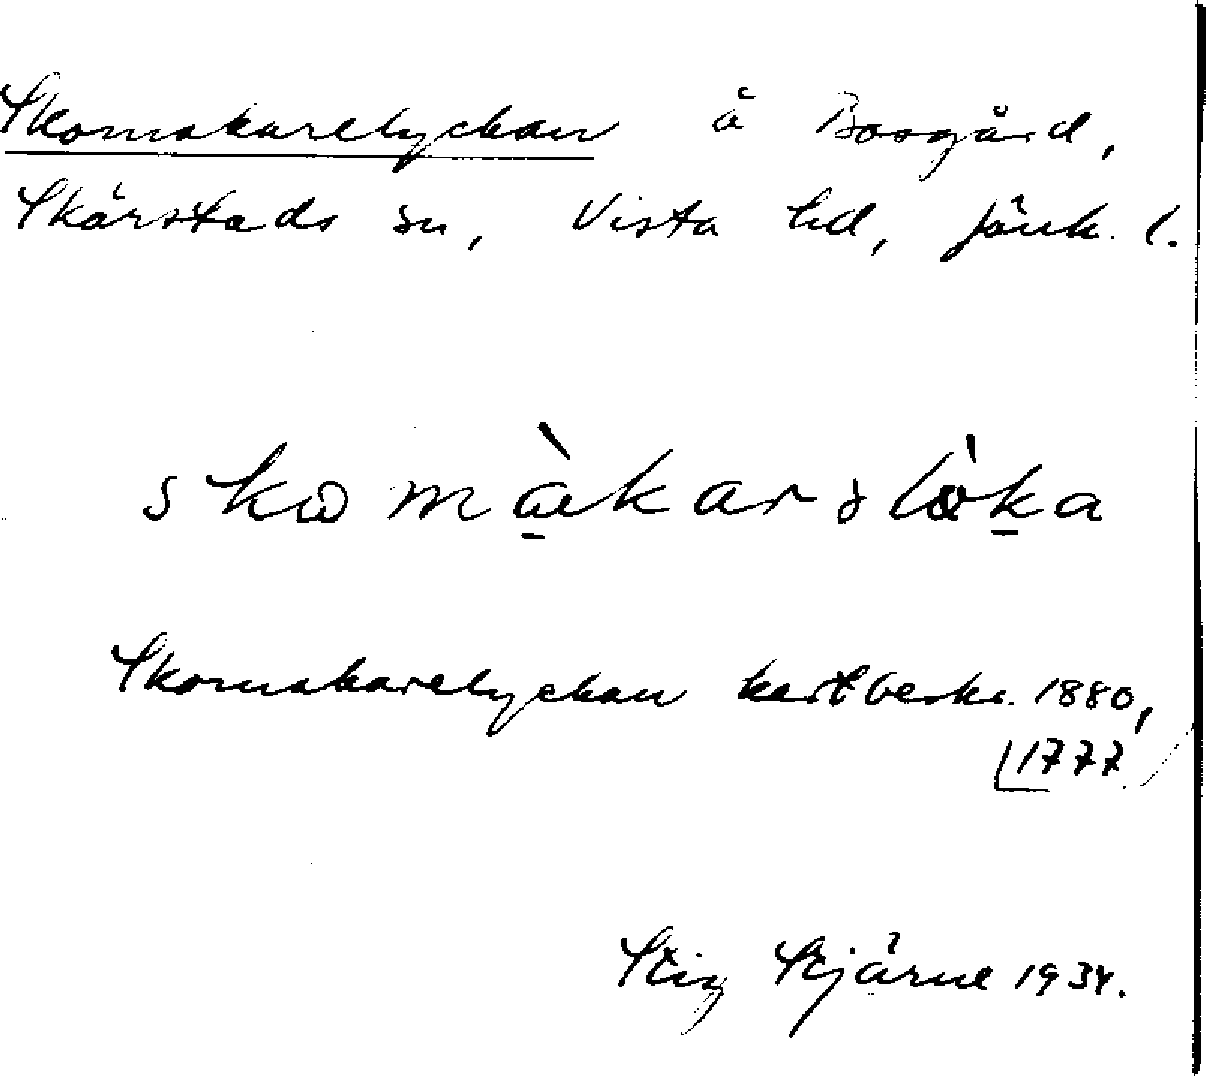 Skomakarelyckan å Bosgård,
Skärstads sn, Vista hd, Jönk. l.
skomàkarslöka
Skomakarelyckan kartbeskr. 1880,
1777
Stig Stjärne 1934.